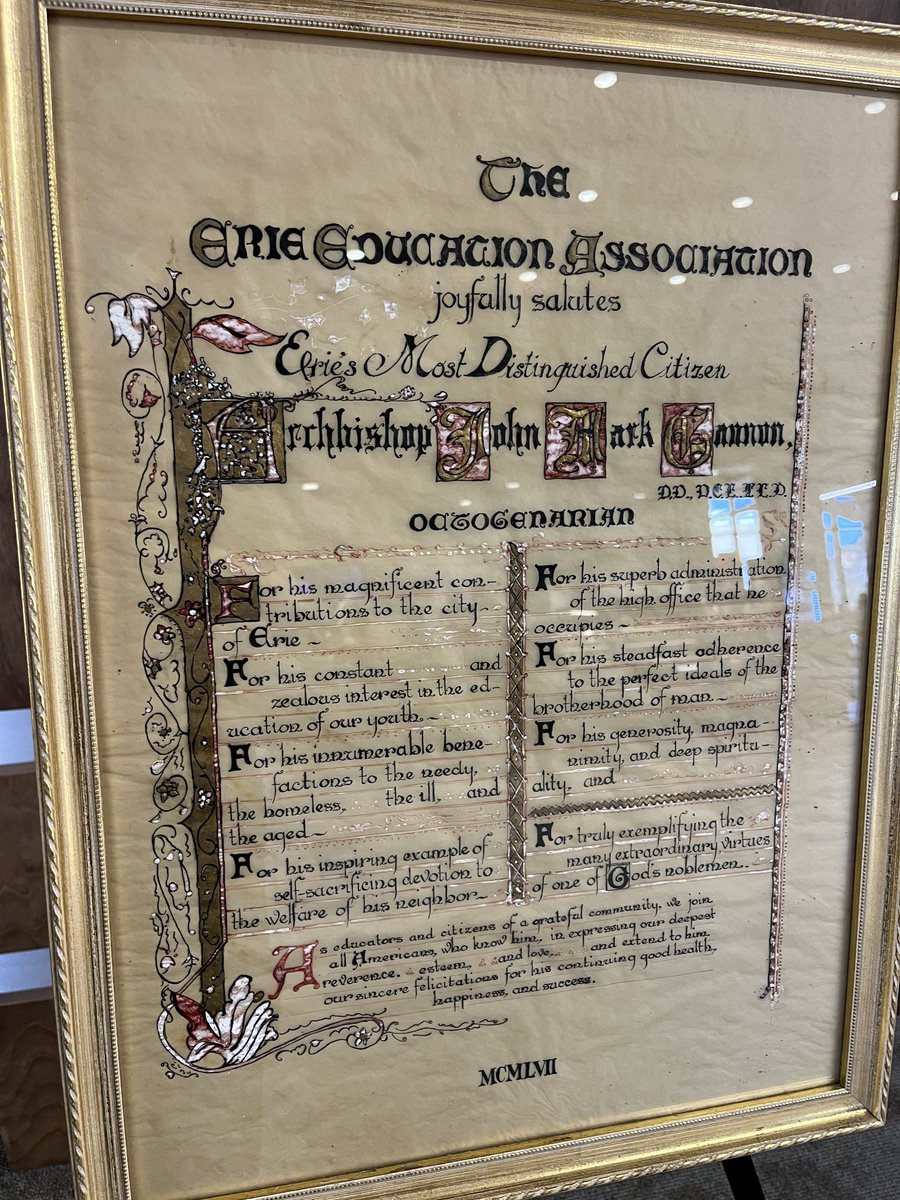 The
Erie Education Association
joyfully salutes
Erie's Most Distinguished Citizen
Archbishop John Mark Gannon,
D.D., D.C.L., LL.D.
OCTOGENARIAN
For his magnificent con-
tributions to the city
of Erie ~
For his constant and
zealous interest in the ed-
ucation of our youth ~
For his innumerable bene-
factions to the needy,
the homeless, the ill, and
the aged ~
For his inspiring example of
self-sacrificing devotion to
the welfare of his neighbor ~
For his superb administration
of the high office that he
occupies ~
For his steadfast adherence
to the perfect ideals of the
brotherhood of man ~
For his generosity, magna-
nimity, and deep spiritu-
ality, and
For truly exemplifying the
many extraordinary virtues
of one of God's noblemen.
As educators and citizens of a grateful community, we join
all Americans, who know him, in expressing our deepest
reverence, esteem, and love, and extend to him
our sincere felicitations for his continuing good health,
happiness, and success.
MCMLVII